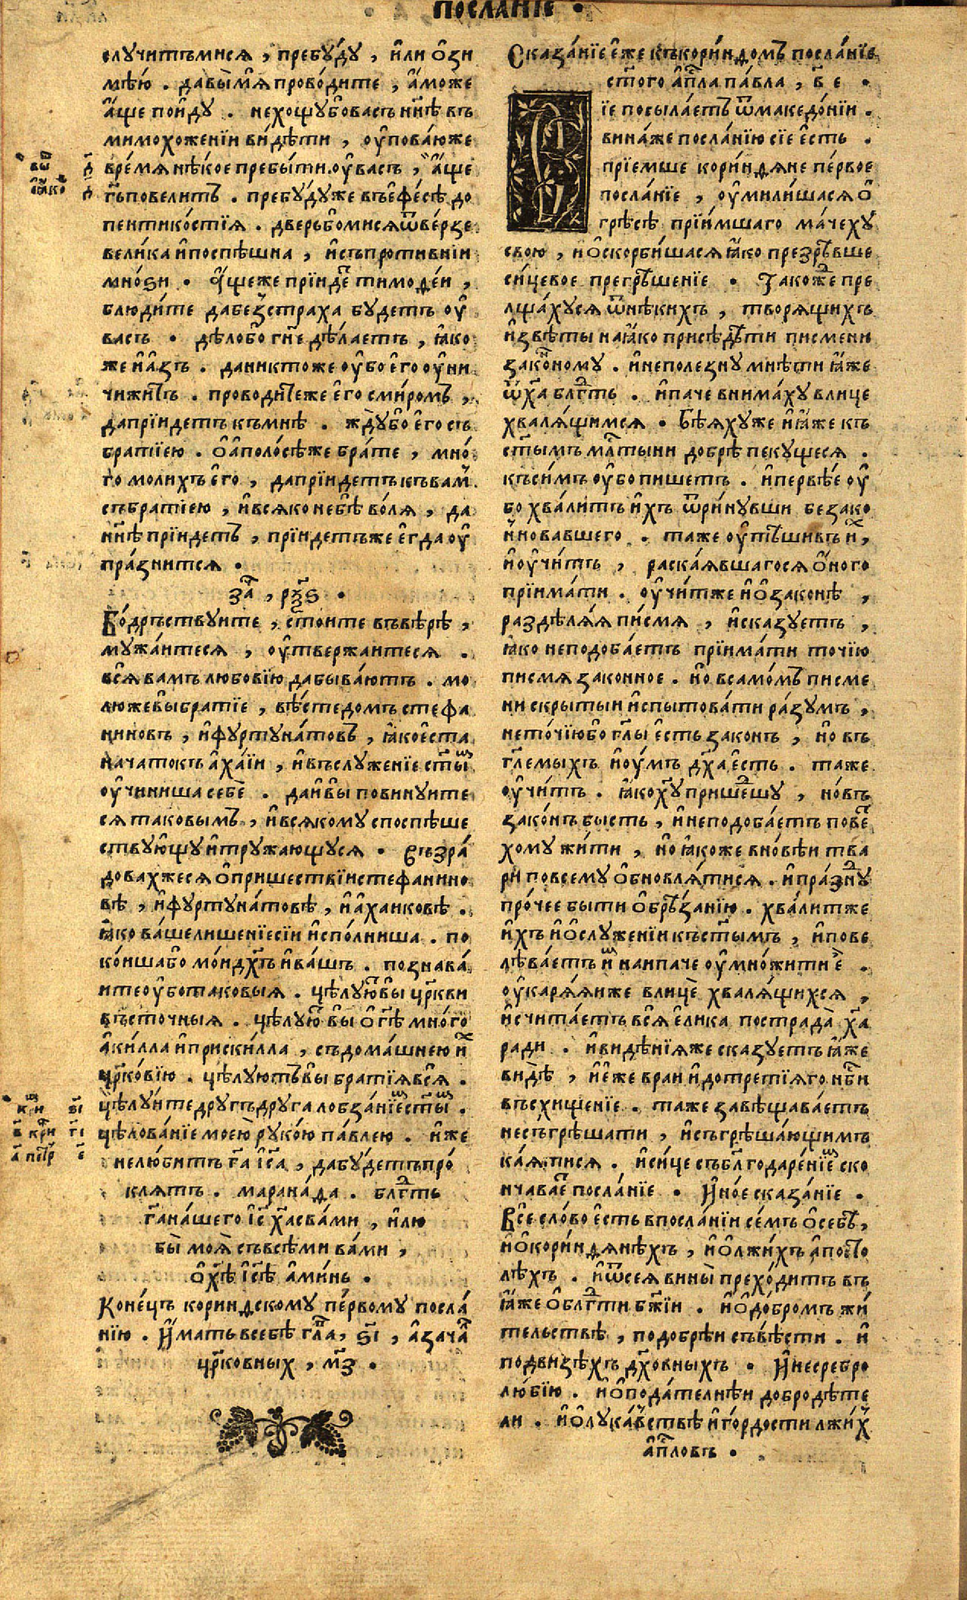 ПОСЛАНІЕ •
случитъмися , пребу́ду , и҆́ли ѻ҆зи
мѣю̀ . давы̀мѧ проводите , а҆́може
а҆́ще пои҆́ду . нехощубовасъ нн҃ѣ въ
мимохоженїи ви́дѣти , оу҆пова́юже
времѧ нѣ́кое пребы́ти оу҆ васъ , а҆́ще
гь҃повели́тъ . пребу́дуже въефе́сѣ до
пентико́стїѧ . две́рьбомисѧ ѿве́рзе
вели́ка и҆поспѣ́шна , и҆съпроти́внїи
мно́ѕи . а҆́щеже прїи́детъ тимоѳе́и ,
блюди́те дабезстраха бу́детъ оу҆
ва́съ . дѣ́лобо гн҃е дѣ́лаетъ , ꙗ҆́ко
же и҆а҆́зъ . даникто́же оу҆̀бо е҆го оу҆ни
чижи́тъ . проводи́теже е҆го̀ сми́ромъ ,
дапрїи́детъ къмнѣ̀ . жду́бо е҆го̀ съ
бра́тїею . ѻ҆ а҆поло́сѣже бра́те , мно́
го моли́хъ е҆го̀ , дапрїи́детъ къвамъ
събра́тїею , и҆вся́ко небѣ̀ во́лѧ , да
нн҃ѣ прїи́детъ , прїи́детъже е҆гда̀ оу҆
пра́знитсѧ .
за҃ , рѯ҃ѕ .
Бо́дръствуите , сто́ите въвѣ́рѣ ,
мужа́итесѧ , оу҆твержа́итесѧ .
всѧ̀ ва́мъ любо́вїю дабыва́ютъ . мо
лю́жевы̀ бра́тїе , вѣ́сте до́мъ стефа
ни́новъ , и҆фуртуна́товъ , ꙗ҆́коестѧ
нача́токъ а҆ха́їи , и҆въслуже́нїе ст҃ы́мъ
оу҆чини́ша себѐ . даи҆вы̀ повину́ите
сѧ таковы́мъ , и҆вся́кому споспѣше
ству́ющу и҆тружа́ющусѧ . Възра́
довахжесѧ ѻ҆прише́ствїи стефани́но
вѣ , и҆фуртуна́товѣ , и҆а҆ха́иковѣ .
ꙗ҆́ко ва́шелише́нїесїи и҆спо́лниша . по
ко́ишабо мо́идх҃ъ и҆ва́шъ . познава́
ите оу҆̀ботаковы́ѧ . цѣлу́ютъвы цр҃кви
въсто́чныѧ . цѣлу́ютъ вы̀ ѻ҆ гд҃ѣ мно́го
а҆ки́лла и҆приски́лла , съдома́шнею и҆хъ
цр҃ковїю . цѣлу́ютъвы бра́тїѧвсѧ̀ .
цѣлу́итедру́гъдру́га лобза́нїемъст҃ы́мъ .
цѣлова́нїе мое́ю руко́ю па́влею . и҆́же
нелю́битъ гд҃а і҆с҃а , дабу́детъпро́
клѧтъ . марана́ѳа . блг҃дть
гд҃ана́шего і҆с҃ хр҃асва́ми , и҆лю
бы̀ моѧ̀ съвсѣ́ми ва́ми ,
ѻ҆ хр҃ѣ̀ і҆с҃ѣ а҆ми́нь .
Коне́цъ кори́нѳскому пе́рвому посла́
нїю . И҆́мать всебѣ̀ гла҃ , ѕ҃і , а҆зача́лъ
цр҃ко́вныхъ , м҃з .
Сказа́нїе е҆́же къкори́нѳомъ посла́нїе
ст҃о́го а҆пⷭ҇ла па́вла , в҃ е .
їе посыла́етъ ѿмакедо́нїи .
вина́же посла́нїю сїе є҆́сть .
прїе́мше кори́нѳѧне пе́рвое
посла́нїе , оу҆мили́шасѧ ѻ҆
грѣ́сѣ прїи́мшаго ма́чеху
свою̀ , и҆ѻ҆скорби́шасѧ ꙗ҆́ко презрѣ́вше
си́цевое прегрѣше́нїе . Та́коже пре
лща́хусѧ ѿнѣ́кихъ , творѧ́щихъ
и҆звѣ́ты наꙗ҆́ко присѣдѣ́ти пи́смени
зако́нному . и҆неполе́зну мнѣ́ти ꙗ҆́же
ѿхр҃а блг҃дть . и҆па́че внима́ху влицѐ
хва́лѧщимсѧ . Бѣ́ѧхуже и҆ꙗ҆́же къ
ст҃ы́мъ мл҃тыни до́брѣ пеку́щеесѧ .
къси́мъ оу҆̀бо пи́шетъ . и҆пе́рвѣе оу҆̀
бо хва́литъ и҆́хъ ѿри́нувши безако́
нновавшего . та́же оу҆тѣ́шивъ и҆хъ ,
и҆оу҆чи́тъ , раска́ѧвшагосѧ ѻ҆́ного
прїима́ти . оу҆чи́тже и҆ѻ҆зако́нѣ ,
раздѣлѧ́ѧ пи́смѧ , и҆ска́зуетъ ,
ꙗ҆́ко неподоба́етъ прїима́ти точїю
писмѧ̀ зако́нное . но̀ всамо́мъ писме
ни скры́тыи и҆спытова́ти ра́зумъ ,
нето́чїюбо гл҃ы̀ е҆́сть зако́нъ , но̀ въ
гл҃емыхъ и҆оу҆мъ дх҃а е҆́сть . та́же
оу҆чи́тъ . ꙗ҆́ко хр҃у̀ прише́дшу , но́въ
зако́нъ бы́сть , и҆неподоба́етъ пове́т
хому жи́ти , но̀ ꙗ҆́коже вно́вѣи тва́
ри повсему̀ ѻ҆бновлѧ́тисѧ . и҆пра́здну
про́чее бы́ти ѻ҆брѣ́занїю . хва́литже
и҆́хъ и҆ѻ҆служе́нїи къст҃ы́мъ , и҆пове
лѣва́етъ и҆мъ наипа́че оу҆мно́жити е҆̀ .
оу҆карѧ́ѧиже влицѐ хва́лѧщихсѧ ,
и҆счита́етъ всѧ̀ е҆ли́ка пострада̀ хр҃а
ра́ди . и҆видѣ́нїѧже ска́зуетъ ꙗ҆́же
ви́дѣ , и҆е҆́же вра́и и҆дотре́тїѧго нб҃си
въсхище́нїе . та́же завѣщава́етъ
несъгрѣша́ти , и҆съгрѣша́ющимъ
ка́ѧтисѧ . и҆си́це съблагодаре́нїемъ ско
нчава́етъ посла́нїе . И҆но́е сказа́нїе .
Все сло́во е҆́сть впосла́нїи се́мъ ѻ҆себѣ̀ ,
и҆ѻ҆кори́нѳѧнѣхъ , и҆ѻ҆лжи́хъ а҆по́сто
лѣхъ . и҆ѿсеѧ̀ вины̀ прехо́дитъ въ
ꙗ҆́же ѻ҆блг҃дти бж҃їи . и҆ѻ҆до́бромъ жи́
тельствѣ , подо́брѣи съвѣ́сти . и҆
подви́зѣхъ дх҃о́вныхъ . И҆несребро
лю́бїю . и҆ѻ҆пода́телнѣи добродѣ́те
ли . и҆ѻ҆лука́вствѣ и҆го́рдости лжи́хъ
а҆пⷭ҇ловъ .